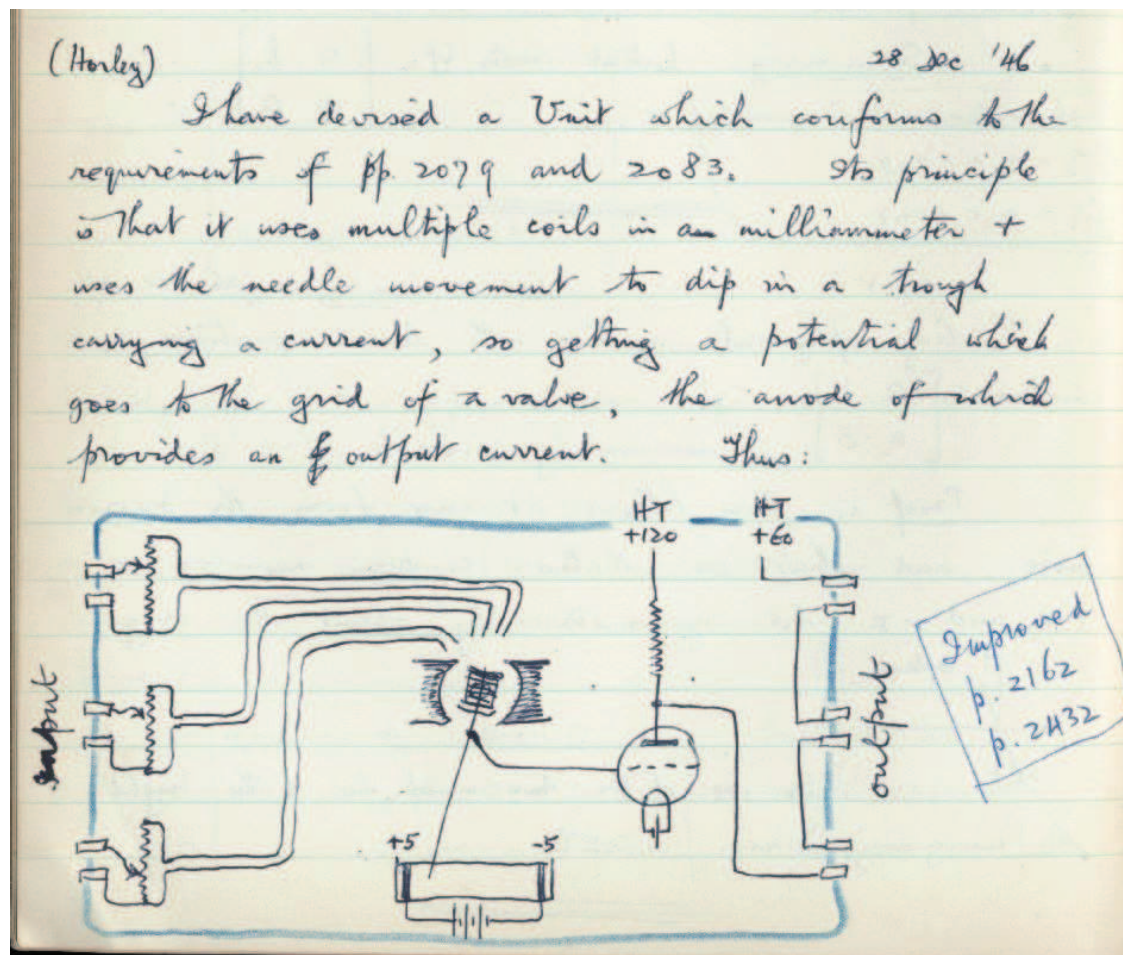 (Horley) 28 Dec '46
I have devised a Unit which conforms to the
requirements of pp. 2079 and 2083. Its principle
is that it uses multiple coils in a milliammeter +
uses the needle movement to dip in a trough
carrying a current, so getting a potential which
goes to the grid of a valve, the anode of which
provides an output current. Thus:
HT
+120
HT
+60
input
output
Improved
p. 2162
p. 2432
+5
-5